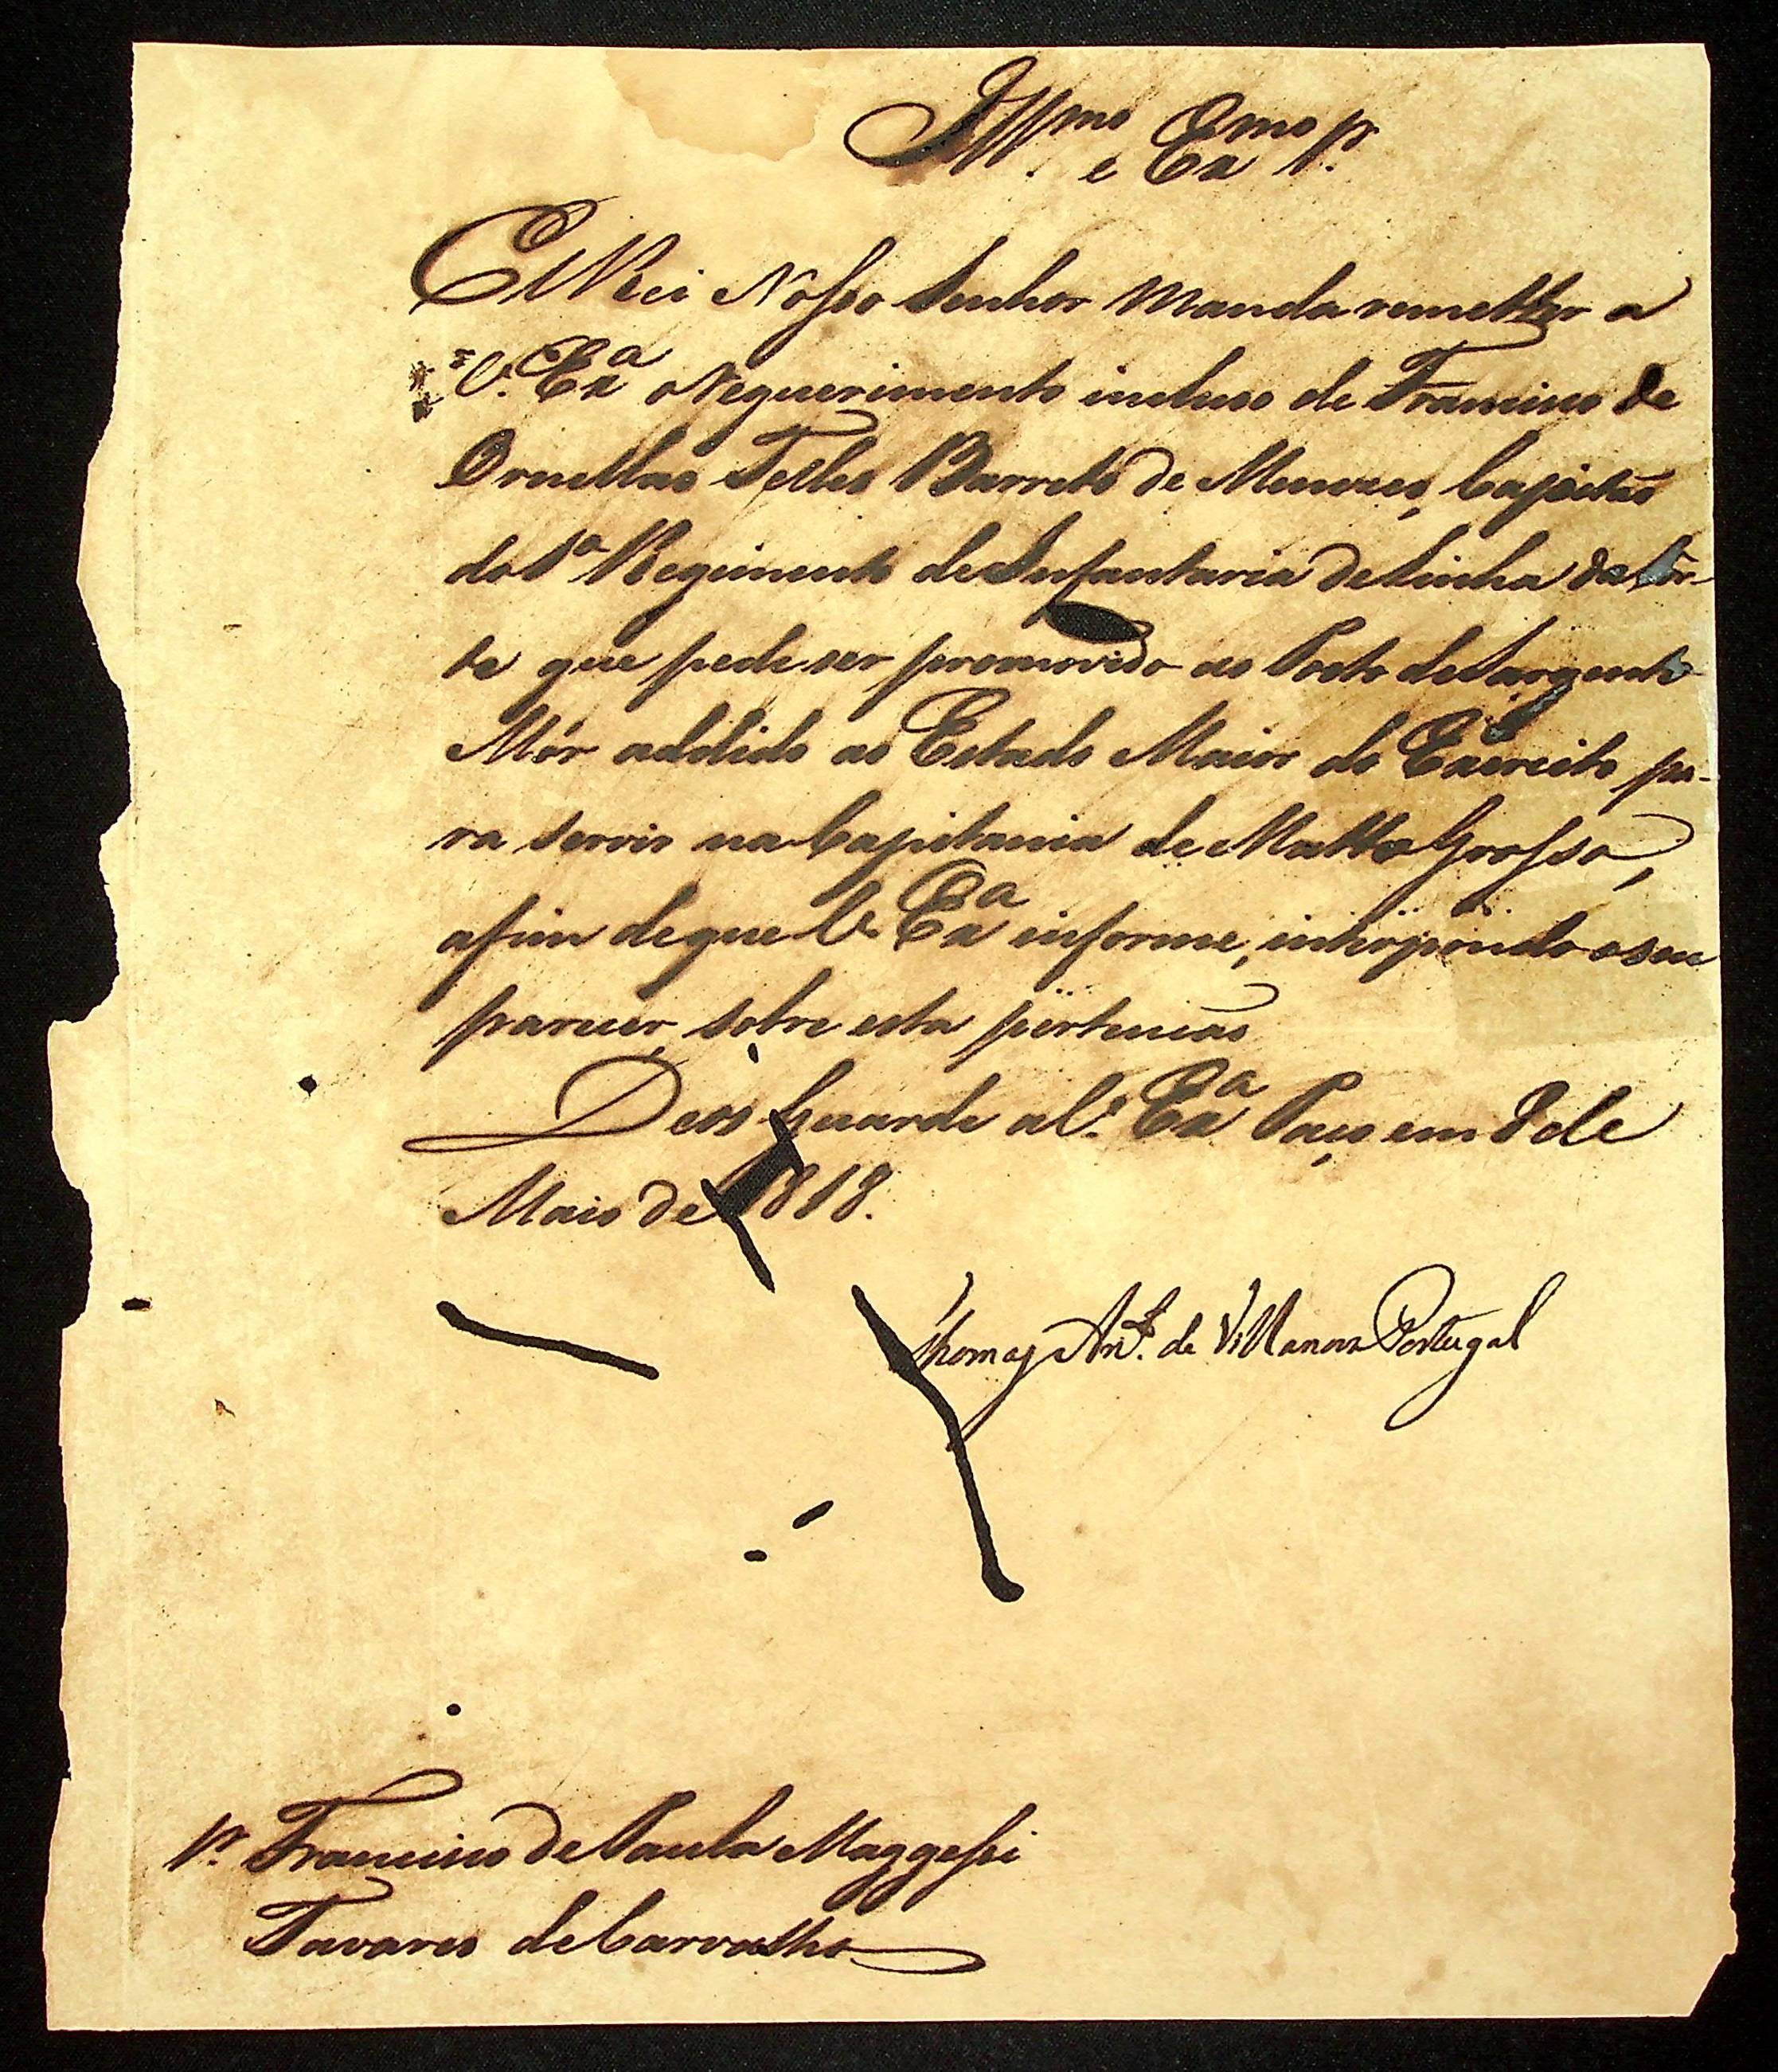 Illmo. e Exmo Sr.
El Rei Nosso Senhor Manda remetter a
V. Exa o Requerimento incluso de Francisco de
Ornellas Telles Barreto de Menezes, Capitão
do 1º Regimento de Infantaria de Linha da Cor-
te que pede ser promovido ao Posto de Sargento
Mór addido ao Estado Maior do Exercito pa-
ra servir na Capitania de Matto Grosso,
afim de que V. Exa informe, interpondo o seu
parecer, sobre esta pertenção
Deos Guarde a V. Exa Paço em 8 de
Maio de 1818.
Thomaz Anto. de Villanova Portugal
Sr. Francisco de Paula Maggessi
Tavares de Carvalho